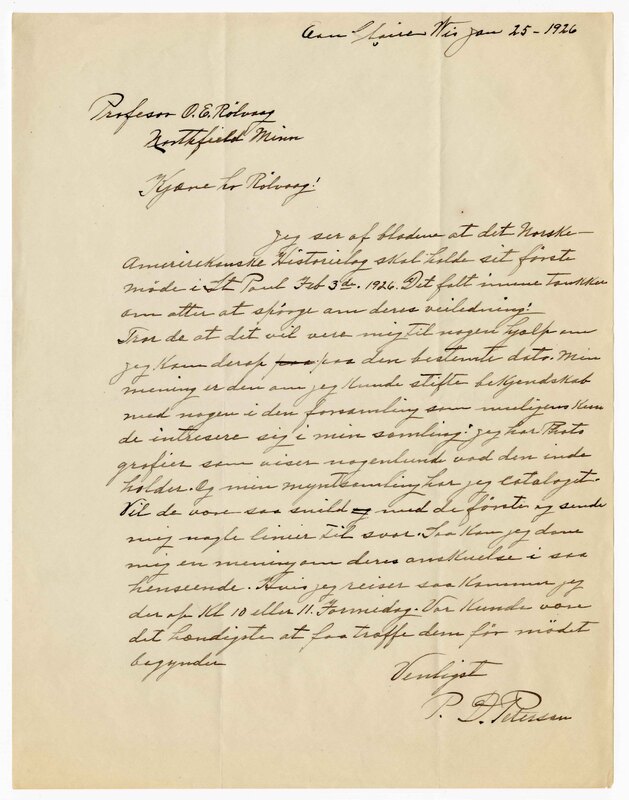 Eau Claire Wis Jan 25 - 1926
Profesor O. E. Rölvaag
Northfield Minn
Kjære hr Rölvaag!
Jeg ser af bladene at det Norske-
Amerirekanske Historielag skal holde sit förste
möde i St Paul Feb 3de. 1926. Det falt i mine tankker
om atter at spörge om deres veiledning!
Tror de at det vil vere mig til nogen hjælp om
jeg kom derop paa paa den bestemte dato. Min
mening er den om jeg kunde stifte bekjendskab
med nogen i den forsamling som muligens kun
de intresere sig i min samling! jeg har Photo
grafier som viser nogenlund vad den inde
holder. Og min myntsamling har jeg cataloget.
Vil de være saa snild og med de förste og sende
meg nogle linier til svar. Saa kan jeg dane
mig en mening om deres anskuelse i saa
henseende. Hvis jeg reiser saa kommer jeg
der op Kl 10 eller 11. Formedag. Vor kunde være
det hændigste at faa træffe dem för mödet
begynder
Venligst
P. D. Peterson